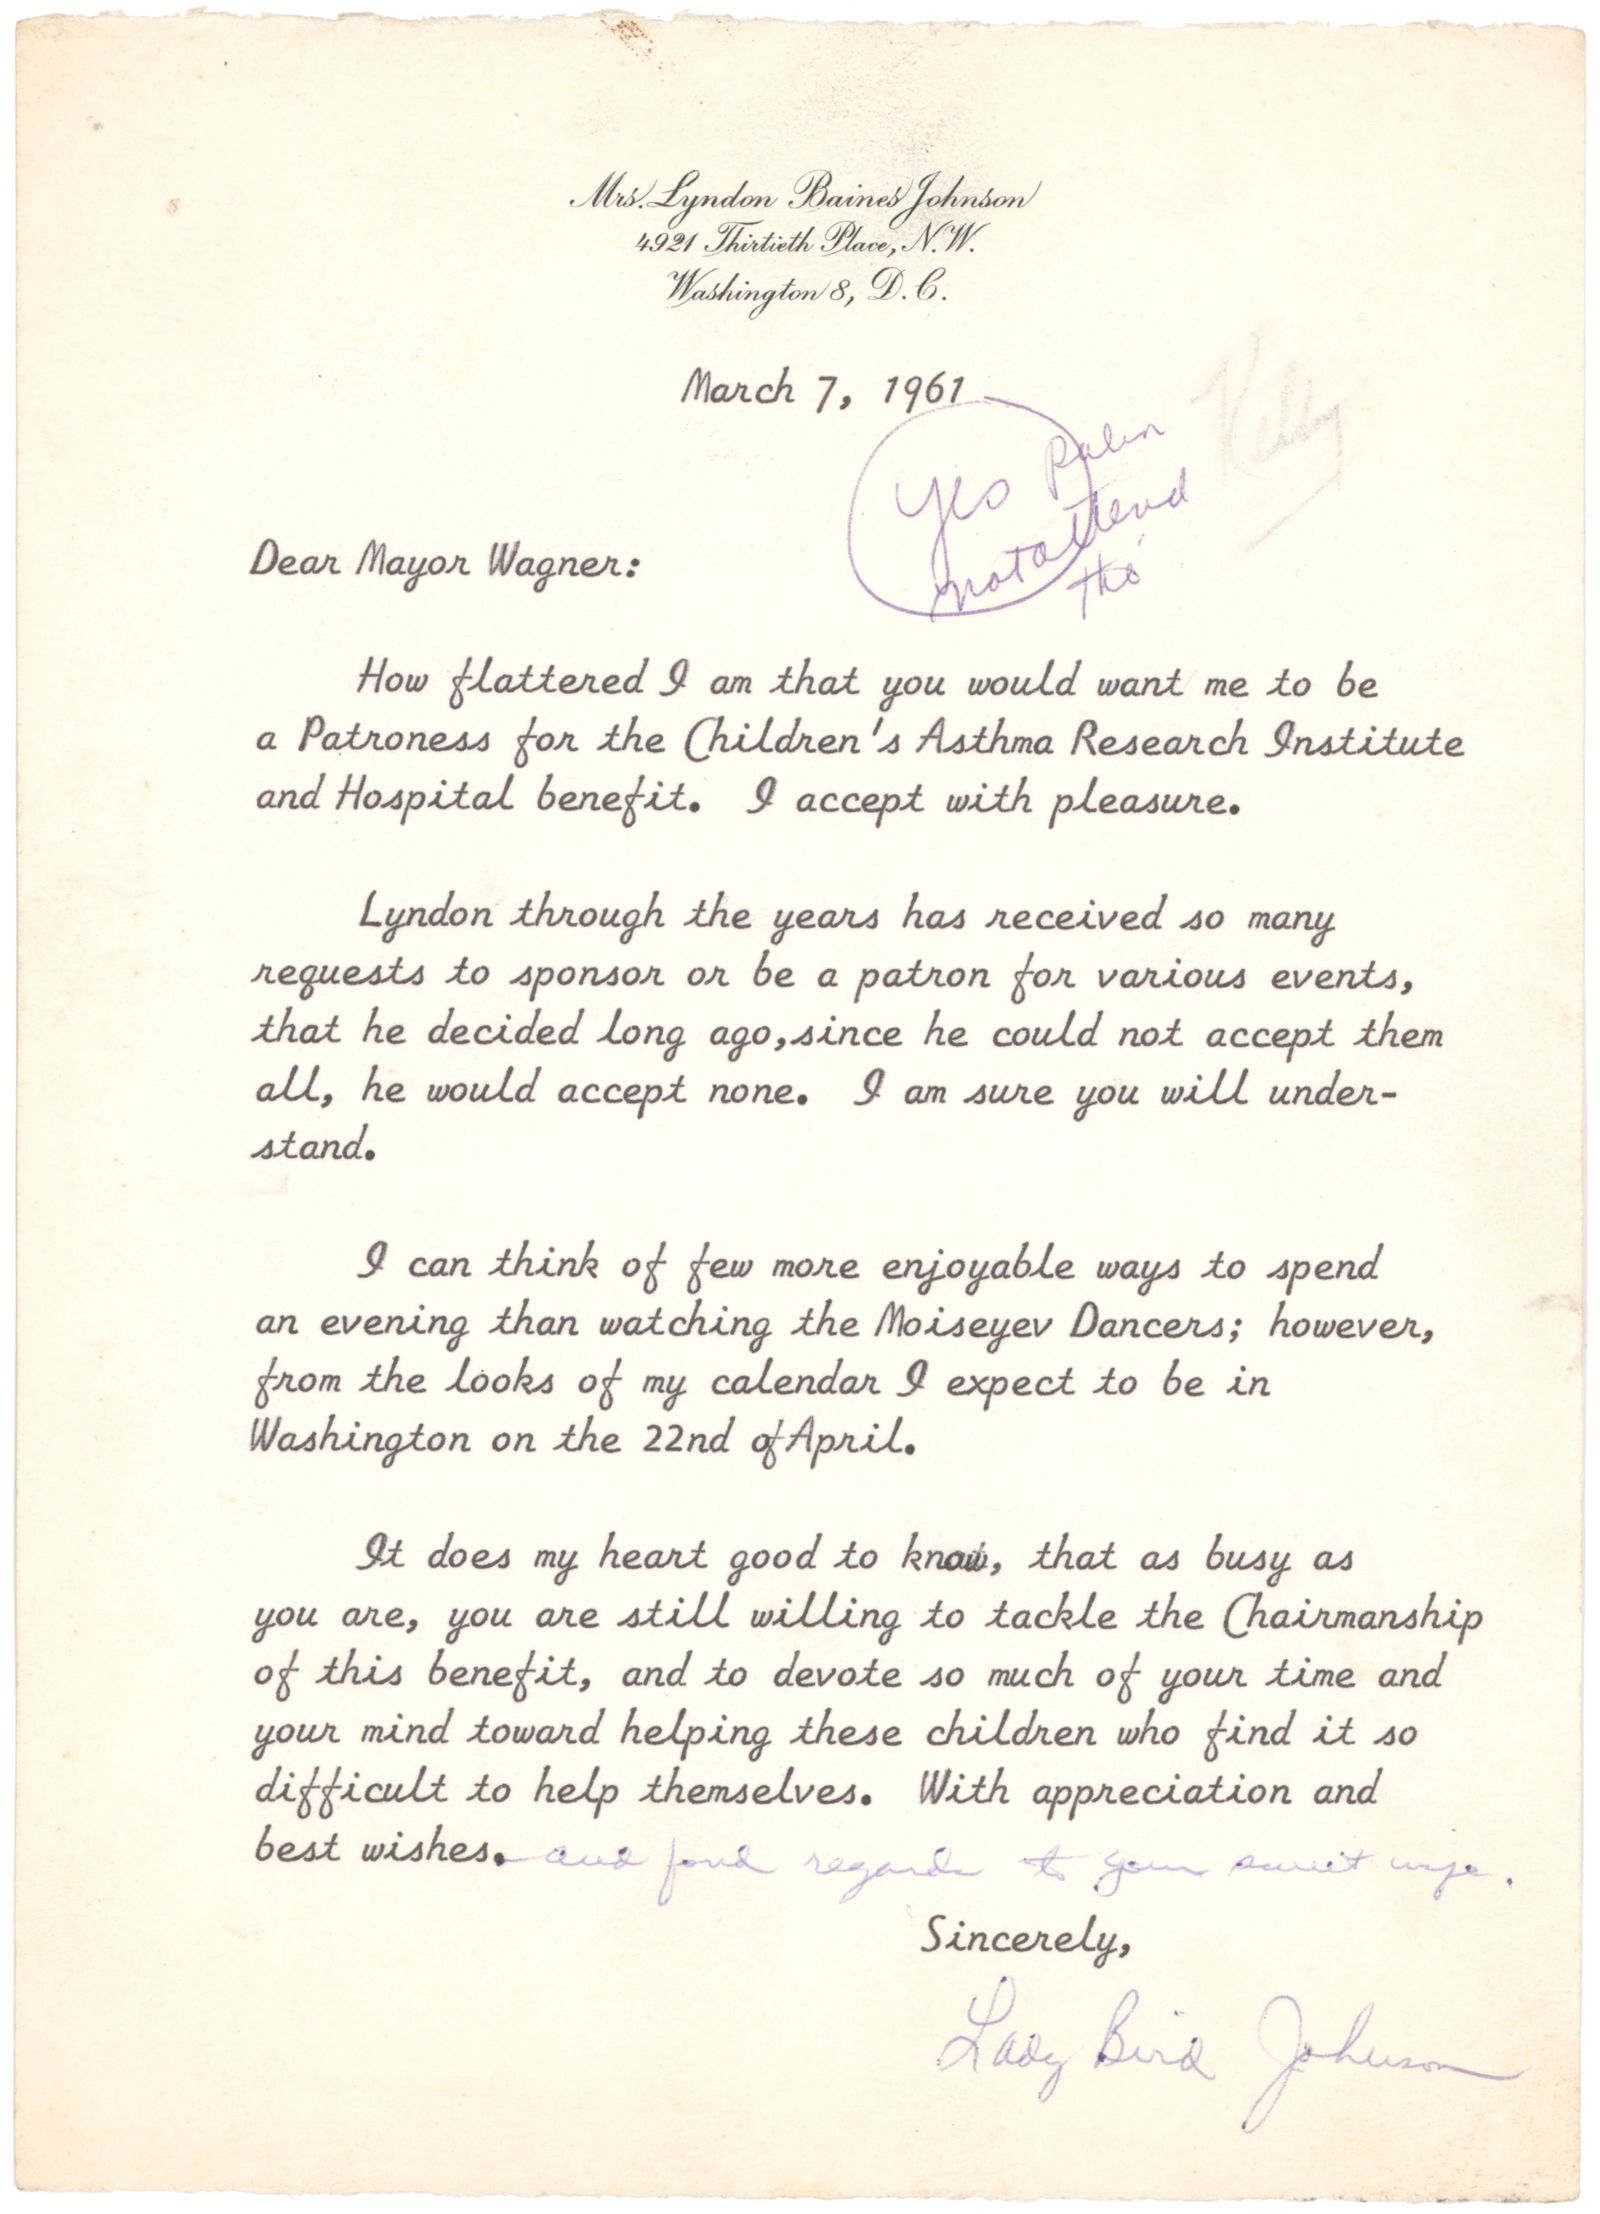 Mrs. Lyndon Baines Johnson
4921 Thirtieth Place, N.W.
Washington 8, D.C.
March 7, 1961
Yes
not attend
tho
Dear Mayor Wagner:
How flattered I am that you would want me to be
a Patroness for the Children's Asthma Research Institute
and Hospital benefit. I accept with pleasure.
Lyndon through the years has received so many
requests to sponsor or be a patron for various events,
that he decided long ago,since he could not accept them
all, he would accept none. I am sure you will under-
stand.
I can think of few more enjoyable ways to spend
an evening than watching the Moiseyev Dancers; however,
from the looks of my calendar I expect to be in
Washington on the 22nd of April.
It does my heart good to know, that as busy as
you are, you are still willing to tackle the Chairmanship
of this benefit, and to devote so much of your time and
your mind toward helping these children who find it so
difficult to help themselves. With appreciation and
best wishes. and fond regards to your sweet wife.
Sincerely,
Lady Bird Johnson